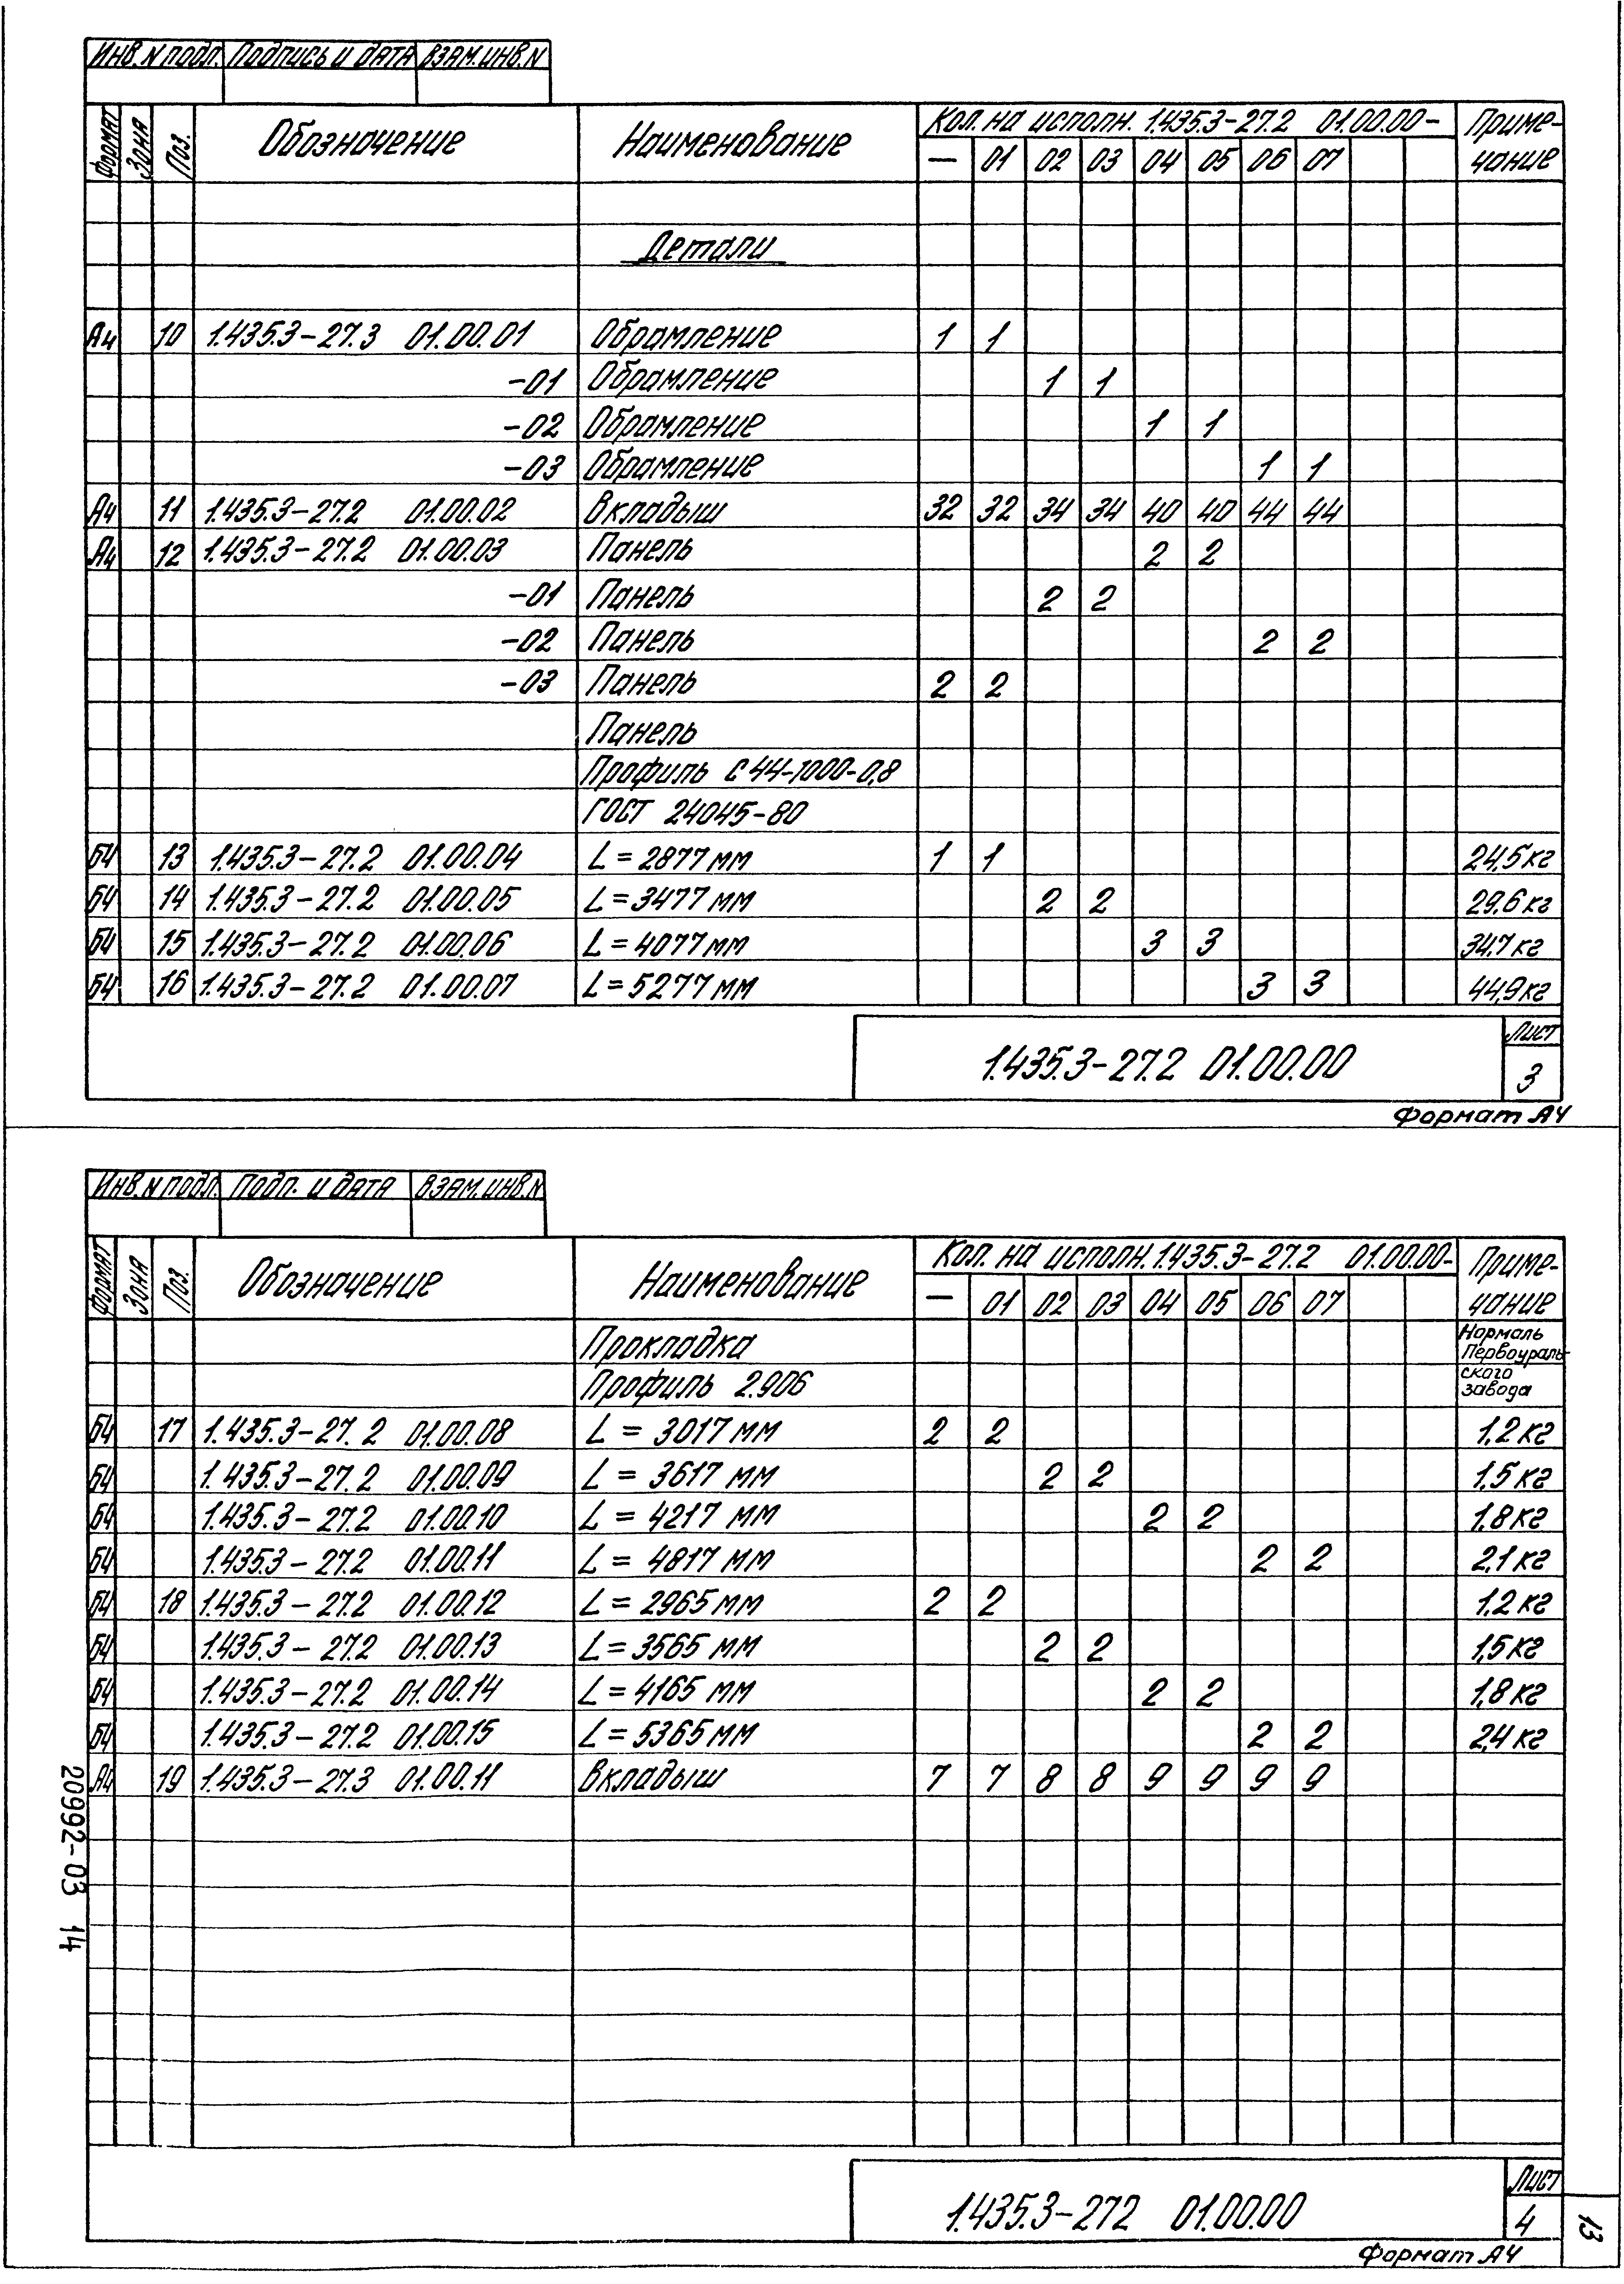 Инв. N подл. Подпись и дата Взам. инв. N
Формат Зона Поз. Обозначение Наименование Кол. на исполн. 1.435.3-27.2 01.00.00- Приме-
— 01 02 03 04 05 06 07 чание
Детали
А4 10 1.435.3-27.3 01.00.01 Обрамление 1 1
-01 Обрамление 1 1
-02 Обрамление 1 1
-03 Обрамление 1 1
А4 11 1.435.3-27.2 01.00.02 Вкладыш 32 32 34 34 40 40 44 44
А4 12 1.435.3-27.2 01.00.03 Панель 2 2
-01 Панель 2 2
-02 Панель 2 2
-03 Панель 2 2
Панель
Профиль С44-1000-0,8
ГОСТ 24045-80
БЧ 13 1.435.3-27.2 01.00.04 L = 2877 мм 1 1 24,5 кг
БЧ 14 1.435.3-27.2 01.00.05 L = 3477 мм 2 2 29,6 кг
БЧ 15 1.435.3-27.2 01.00.06 L = 4077 мм 3 3 34,7 кг
БЧ 16 1.435.3-27.2 01.00.07 L = 5277 мм 3 3 44,9 кг
1.435.3-27.2 01.00.00 Лист
3
Формат А4
Инв. N подл. Подп. и дата Взам. инв. N
Формат Зона Поз. Обозначение Наименование Кол. на исполн. 1.435.3-27.2 01.00.00- Приме-
— 01 02 03 04 05 06 07 чание
Прокладка Нормаль
Первоураль-
Профиль 2.906 ского
завода
БЧ 17 1.435.3-27.2 01.00.08 L = 3017 мм 2 2 1,2 кг
БЧ 1.435.3-27.2 01.00.09 L = 3617 мм 2 2 1,5 кг
БЧ 1.435.3-27.2 01.00.10 L = 4217 мм 2 2 1,8 кг
БЧ 1.435.3-27.2 01.00.11 L = 4817 мм 2 2 2,1 кг
БЧ 18 1.435.3-27.2 01.00.12 L = 2965 мм 2 2 1,2 кг
БЧ 1.435.3-27.2 01.00.13 L = 3565 мм 2 2 1,5 кг
БЧ 1.435.3-27.2 01.00.14 L = 4165 мм 2 2 1,8 кг
БЧ 1.435.3-27.2 01.00.15 L = 5365 мм 2 2 2,4 кг
А4 19 1.435.3-27.3 01.00.11 Вкладыш 7 7 8 8 9 9 9 9
20992-03 14
1.435.3-27.2 01.00.00 Лист
4
13
Формат А4